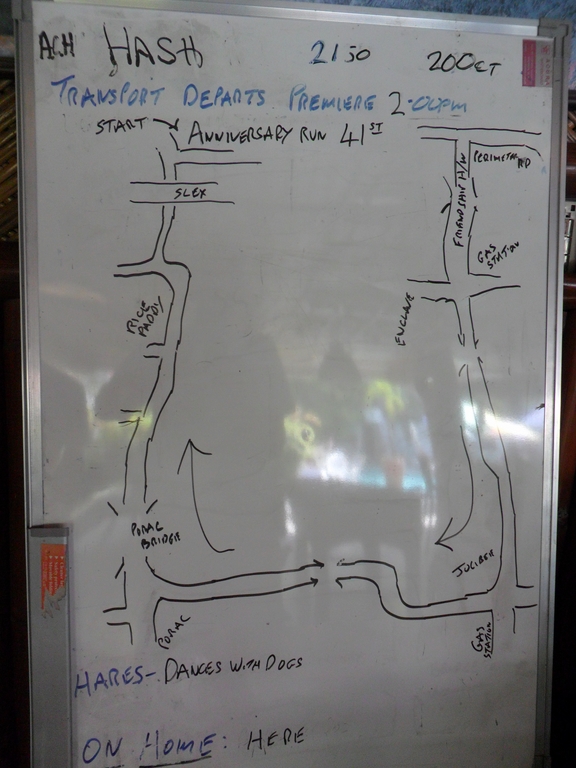 ACH HASH 2150 20OCT
TRANSPORT DEPARTS PREMIERE 2-00PM
START ANNIVERSARY RUN 41ST
PERIMETER RD
SLEX
FRIENDSHIP H/W
GAS STATION
RICE PADDY
ENCLAVE
PORAC BRIDGE
JOLIBEE
PORAC
GAS STATION
HARES- DANCES WITH DOGS
ON HOME: HERE